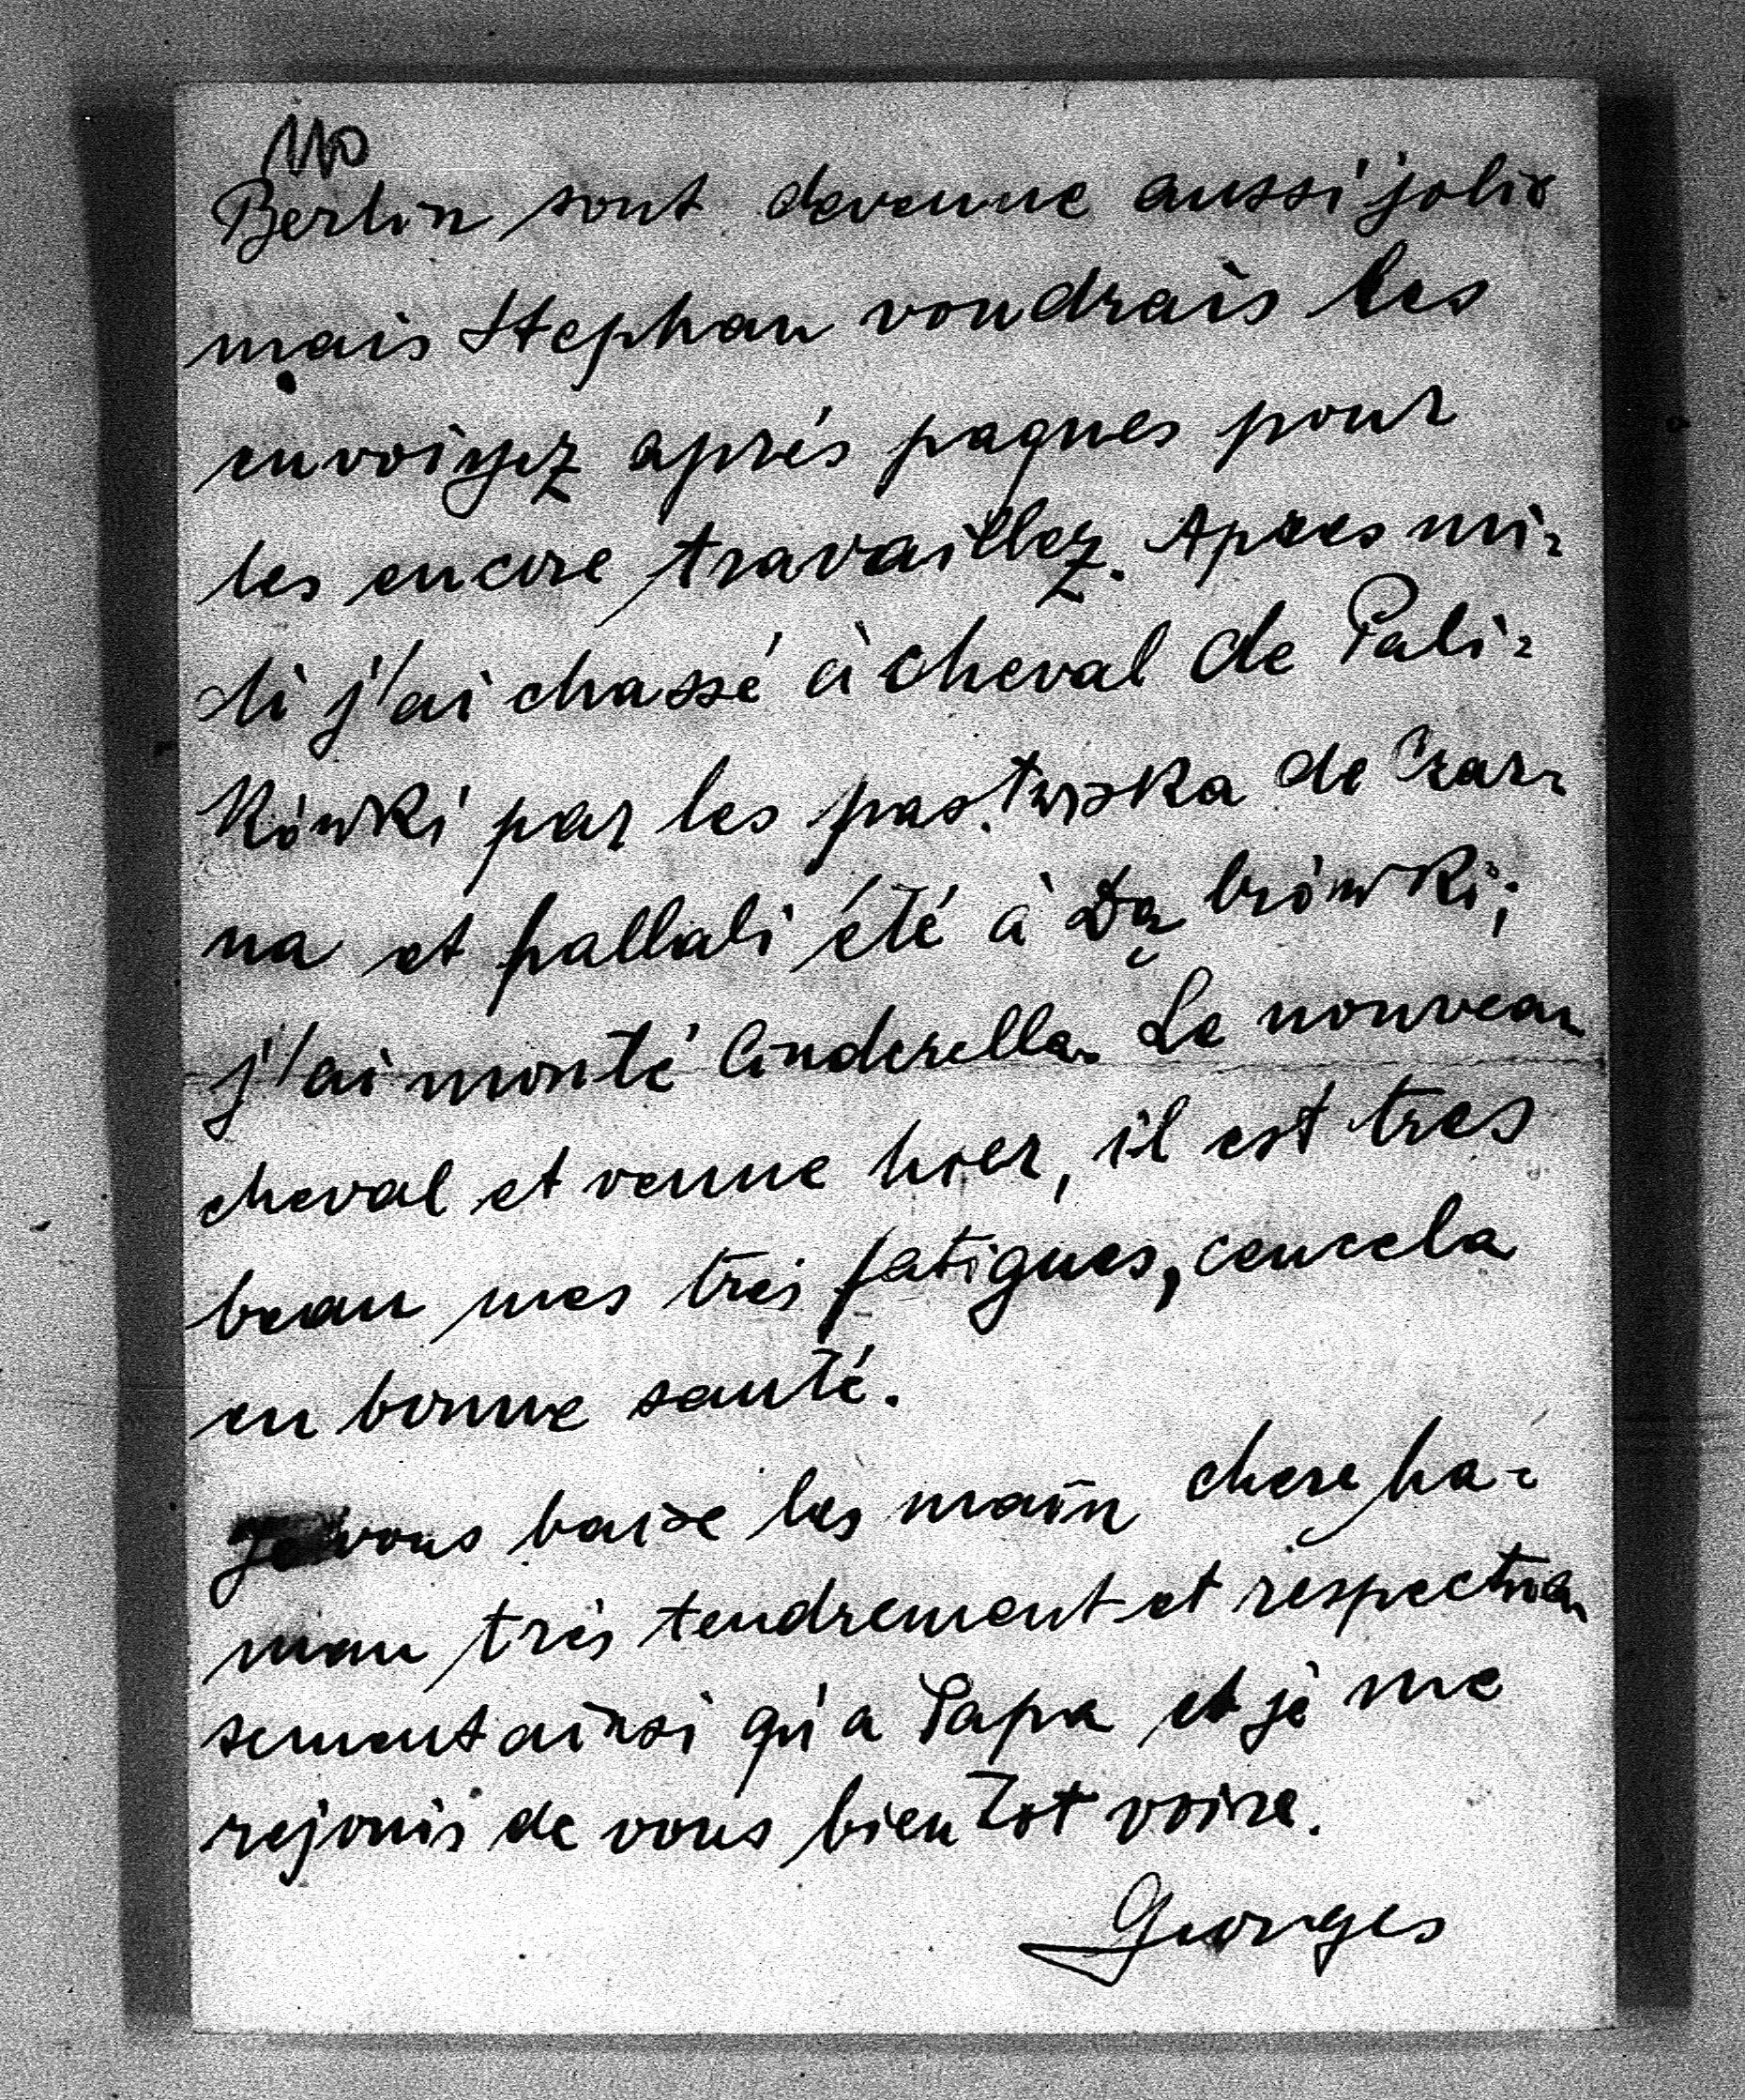 110
Berlin sont devenue aussi jolis
mais Stephan voudrais les
envoiyez aprés paques pour
les encore travaillez. Apres mi-
di j'ai chassé à cheval de Pali-
kówki par les pastwska de Czar-
na et hallali été à Dąbrówki;
j'ai monté Cinderella. Le nouveau
cheval et venue hier, il est tres
beau mes très fatigues,
en bonne santé.
Je vous baise les main chere ha-
man très tendrement et respectueu
sement ainsi qu'a Papa et je me
rejouis de vous bientot voire.
Georges